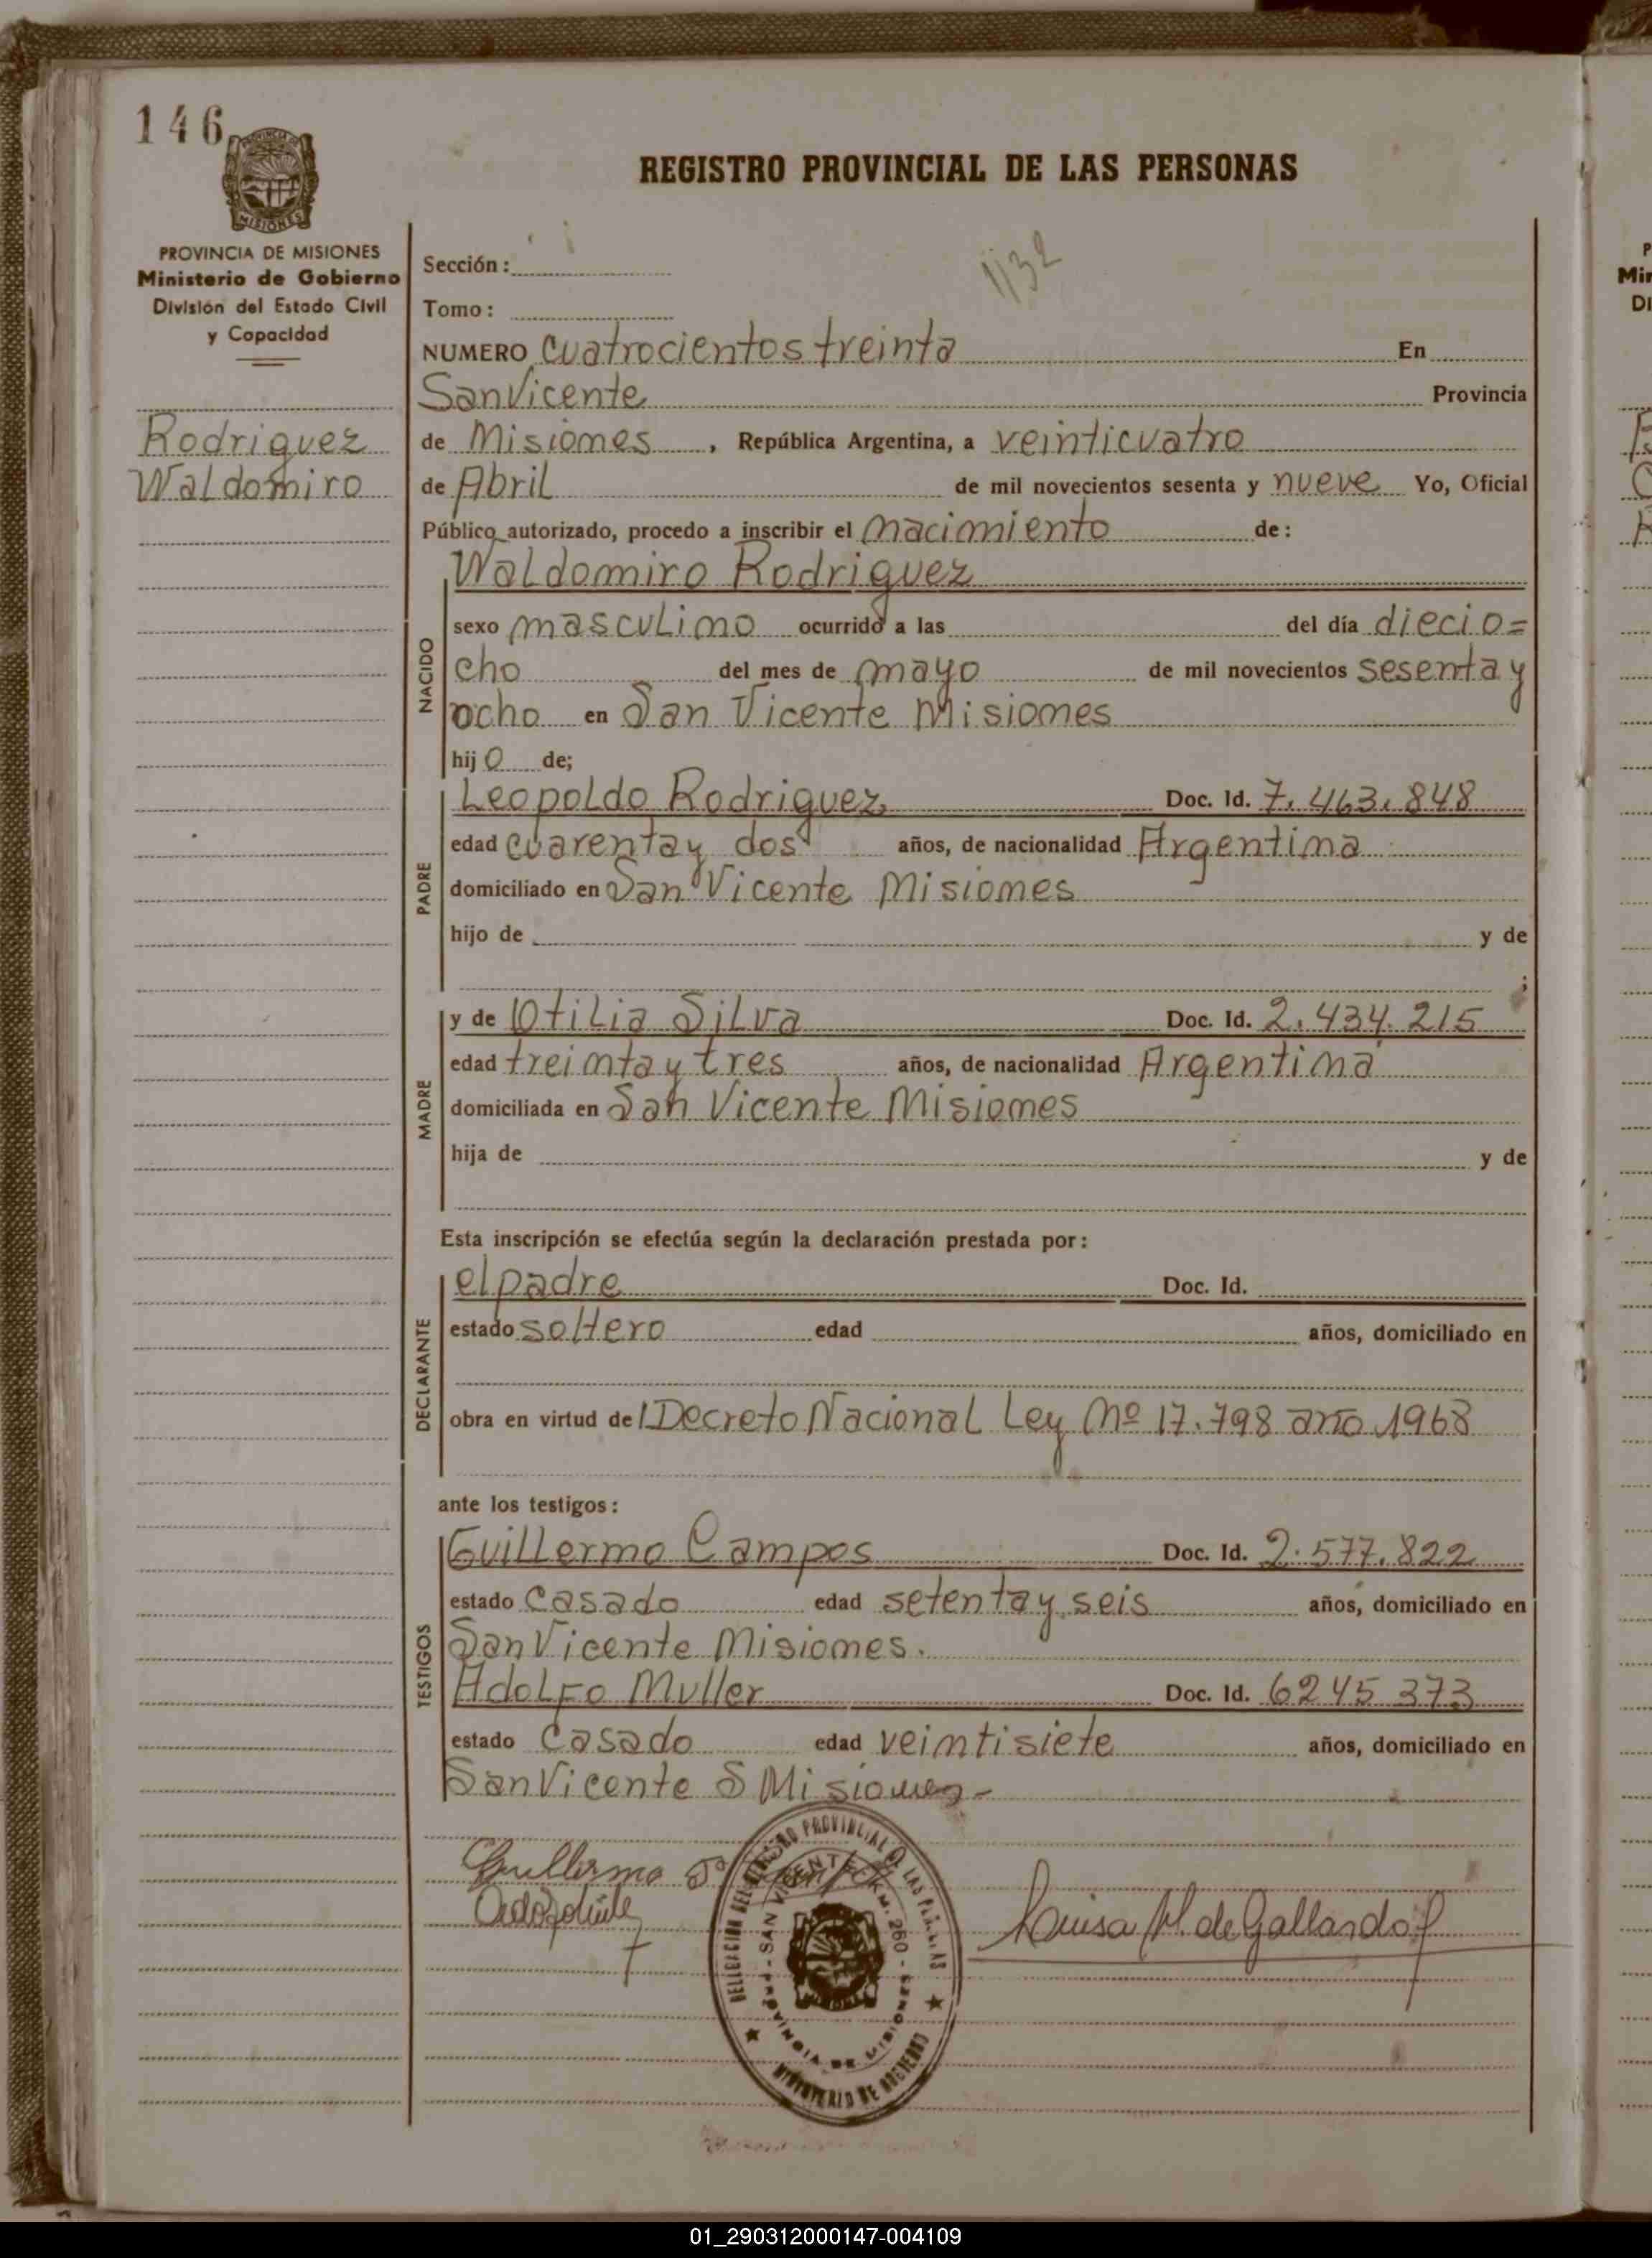 146
PROVINCIA DE
MISIONES
REGISTRO PROVINCIAL DE LAS PERSONAS
PROVINCIA DE MISIONES
Ministerio de Gobierno
División del Estado Civil
y Capacidad
Rodriguez
Waldomiro
1/32
Sección:
Tomo:
NUMERO cuatrocientos treinta En
San Vicente Provincia
de Misiones, República Argentina, a veinticuatro
de Abril de mil novecientos sesenta y nueve Yo, Oficial
Público autorizado, procedo a inscribir el nacimiento de:
Waldomiro Rodriguez
NACIDO
sexo masculino ocurrido a las del día diecio=
cho del mes de mayo de mil novecientos sesenta y
ocho en San Vicente Misiones
hijo de;
PADRE
Leopoldo Rodriguez Doc. Id. 7.463.848
edad cuarenta y dos años, de nacionalidad Argentina
domiciliado en San Vicente Misiones
hijo de y de
;
MADRE
y de Otilia Silva Doc. Id. 2.434.215
edad treinta y tres años, de nacionalidad Argentina
domiciliada en San Vicente Misiones
hija de y de
Esta inscripción se efectúa según la declaración prestada por:
DECLARANTE
el padre Doc. Id.
estado soltero edad años, domiciliado en
obra en virtud del Decreto Nacional Ley Nº 17.798 año 1968
ante los testigos:
TESTIGOS
Guillermo Campos Doc. Id. 2.577.822
estado casado edad setenta y seis años, domiciliado en
San Vicente Misiones.
Adolfo Muller Doc. Id. 6245 373
estado casado edad veintisiete años, domiciliado en
San Vicente S Misiones-
Guillermo
Luisa M. de Gallardo
DELEGACION DEL REGISTRO PROVINCIAL DE LAS PERSONAS
SAN VICENTE - KM. 260 - PROVINCIA DE MISIONES
MINISTERIO DE GOBIERNO
P
Mir
Di
01_290312000147-004109